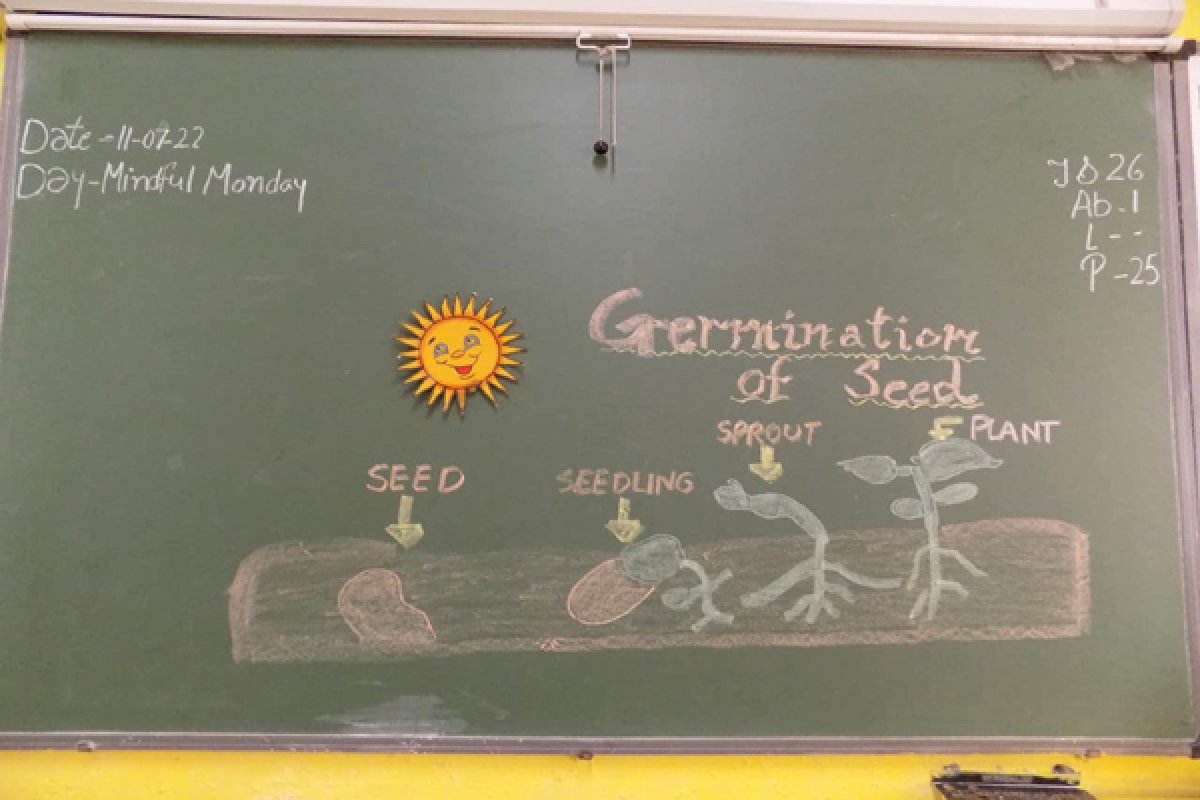 Date - 11-07-22
Day - Mindful Monday
TS 26
Ab - 1
L - -
P - 25
Germination
of Seed
SPROUT
PLANT
SEED
SEEDLING